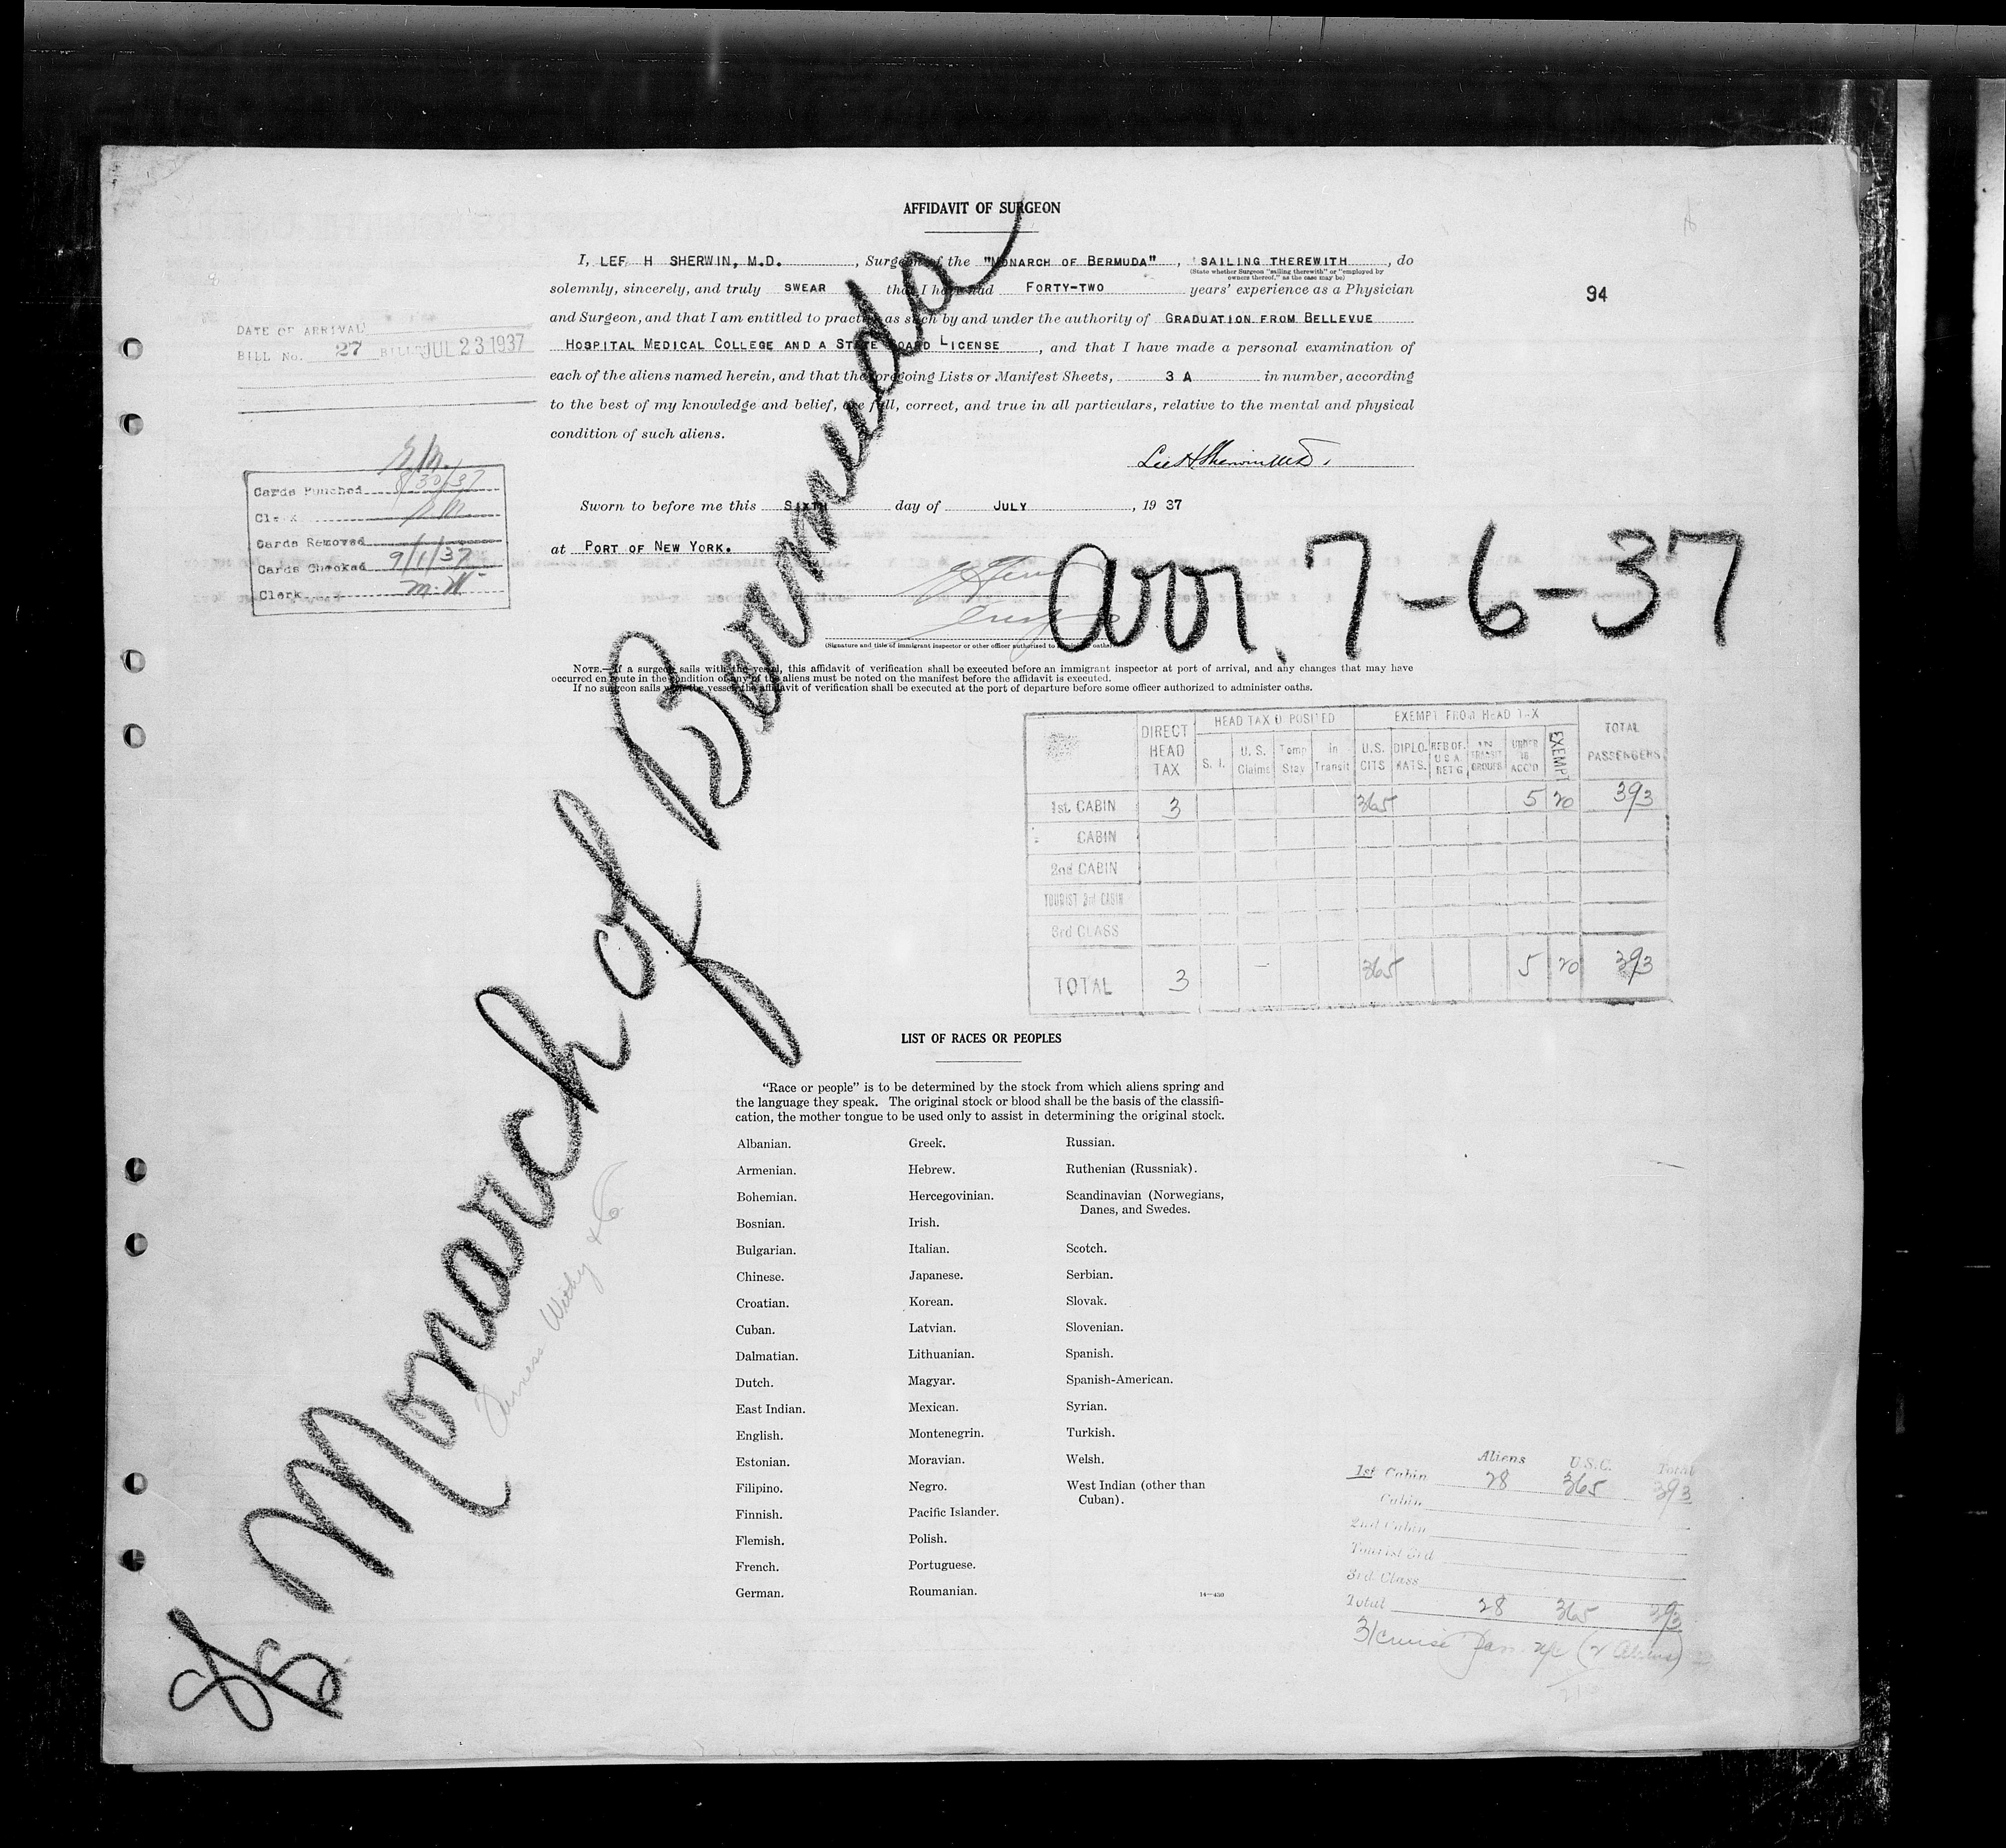 AFFIDAVIT OF SURGEON
I, LEE H SHERWIN, M.D. , Surgeon of the "MONARCH OF BERMUDA" , SAILING THEREWITH , do
(State whether Surgeon "sailing therewith" or "employed by
owners thereof," as the case may be)
solemnly, sincerely, and truly SWEAR that I have had FORTY-TWO years' experience as a Physician
94
and Surgeon, and that I am entitled to practice as such by and under the authority of GRADUATION FROM BELLEVUE
HOSPITAL MEDICAL COLLEGE AND A STATE BOARD LICENSE , and that I have made a personal examination of
each of the aliens named herein, and that the foregoing Lists or Manifest Sheets, 3 A in number, according
to the best of my knowledge and belief, are full, correct, and true in all particulars, relative to the mental and physical
condition of such aliens.
DATE OF ARRIVAL
BILL No. 27 BILL JUL 23 1937
Lee H Sherwin M.D.
Cards Punched 8/30/37
Clerk
Cards Removed
Cards Checked 9/1/37
Clerk M.W.
Sworn to before me this SIXTH day of JULY , 19 37
at PORT OF NEW YORK.
arr. 7-6-37
(Signature and title of immigrant inspector or other officer authorized to administer oaths)
NOTE.—If a surgeon sails with the vessel, this affidavit of verification shall be executed before an immigrant inspector at port of arrival, and any changes that may have
occurred en route in the condition of any of the aliens must be noted on the manifest before the affidavit is executed.
If no surgeon sails with the vessel the affidavit of verification shall be executed at the port of departure before some officer authorized to administer oaths.
SS Monarch of Bermuda
Furness Withy & Co
DIRECT HEAD TAX HEAD TAX DEPOSITED EXEMPT FROM HEAD TAX TOTAL PASSENGERS
S. I. U. S. Claims Temp Stay In Transit U.S. CITS DIPLOMATS. RES OF U S A RET'G IN TRANSIT GROUPS UNDER 16 ACC'D EXEMPT
1st CABIN 3 365 5 20 393
CABIN
2nd CABIN
TOURIST 3rd CABIN
3rd CLASS
TOTAL 3 — 365 5 20 393
LIST OF RACES OR PEOPLES
"Race or people" is to be determined by the stock from which aliens spring and
the language they speak. The original stock or blood shall be the basis of the classifi-
cation, the mother tongue to be used only to assist in determining the original stock.
Albanian.
Armenian.
Bohemian.
Bosnian.
Bulgarian.
Chinese.
Croatian.
Cuban.
Dalmatian.
Dutch.
East Indian.
English.
Estonian.
Filipino.
Finnish.
Flemish.
French.
German.
Greek.
Hebrew.
Hercegovinian.
Irish.
Italian.
Japanese.
Korean.
Latvian.
Lithuanian.
Magyar.
Mexican.
Montenegrin.
Moravian.
Negro.
Pacific Islander.
Polish.
Portuguese.
Roumanian.
Russian.
Ruthenian (Russniak).
Scandinavian (Norwegians,
Danes, and Swedes.
Scotch.
Serbian.
Slovak.
Slovenian.
Spanish.
Spanish-American.
Syrian.
Turkish.
Welsh.
West Indian (other than
Cuban).
14—430
Aliens U.S.C. Total
1st Cabin 28 365 393
Cabin
2nd Cabin
Tourist 3rd
3rd Class
Total 28 365 393
31 cruise Pass. (2 Aliens)